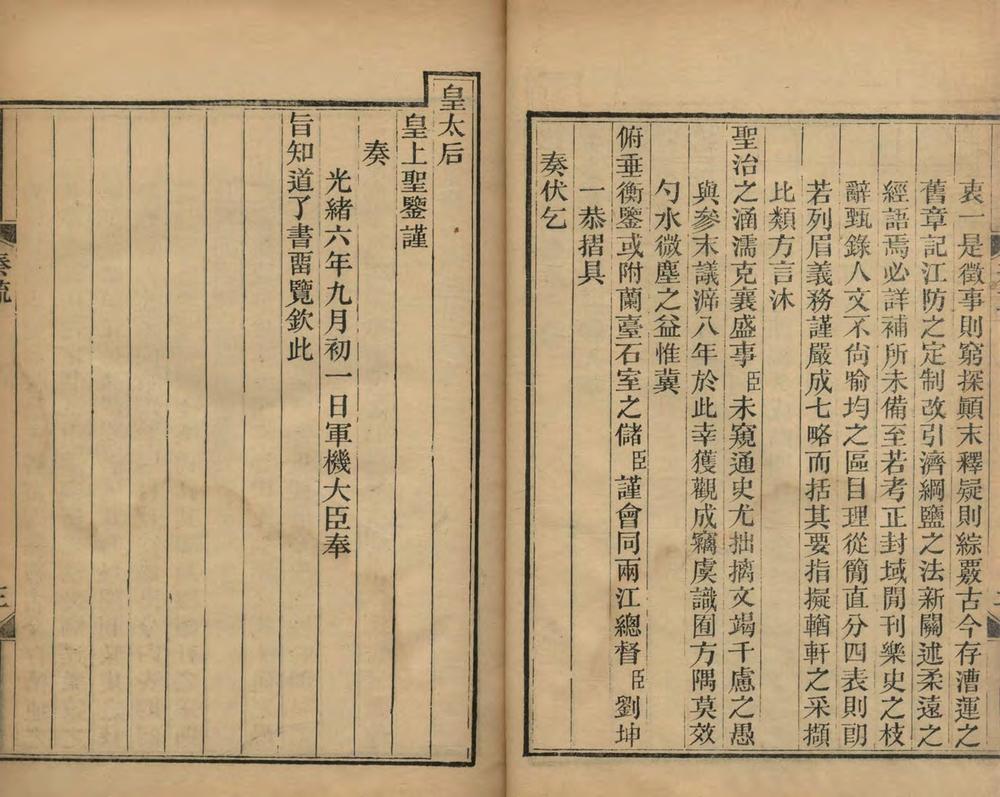 衷一是徵事則窮探顛末釋疑則綜覈古今存漕運之
舊章記江防之定制改引濟綱鹽之法新關述柔遠之
經語焉必詳補所未備至若考正封域閒刊樂史之枝
辭甄錄人文不尙喻均之區目理從簡直分四表則朗
若列眉義務謹嚴成七略而括其要指擬輶軒之采擷
比類方言沐
聖治之涵濡克襄盛事臣未窺通史尤拙摛文竭千慮之愚
與參末議滯八年於此幸獲觀成竊虞識囿方隅莫效
勺水微塵之益惟冀
俯垂衡鑒或附蘭臺石室之儲臣謹會同兩江總督臣劉坤
一恭摺具
奏伏乞
皇太后
皇上聖鑒謹
奏
光緖六年九月初一日軍機大臣奉
旨知道了書畱覽欽此
奏疏
三